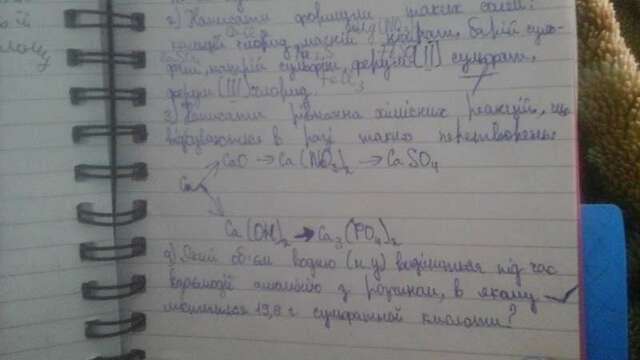 2) Написати формули таких солей:
кальцій хлорид, магній нітрат, барій суль-
фат, натрій сульфат, ферум (II) сульфат,
ферум (III) хлорид.
3) Написати рівняння хімічних реакцій, що
відбуваються в разі таких перетворень:
CaO → Ca(NO3)2 → CaSO4
Ca
Ca(OH)2 → Ca3(PO4)2
Який об'єм водню (н.у) виділиться під час
взаємодії алюмінію з розчином, в якому
міститься 19,8 г сульфатної кислоти?